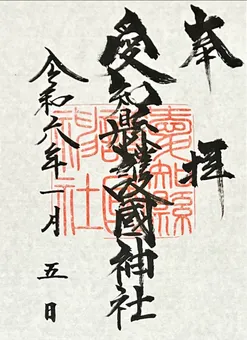 奉拝
愛知縣護國神社
令和六年一月五日
愛知縣護國神社